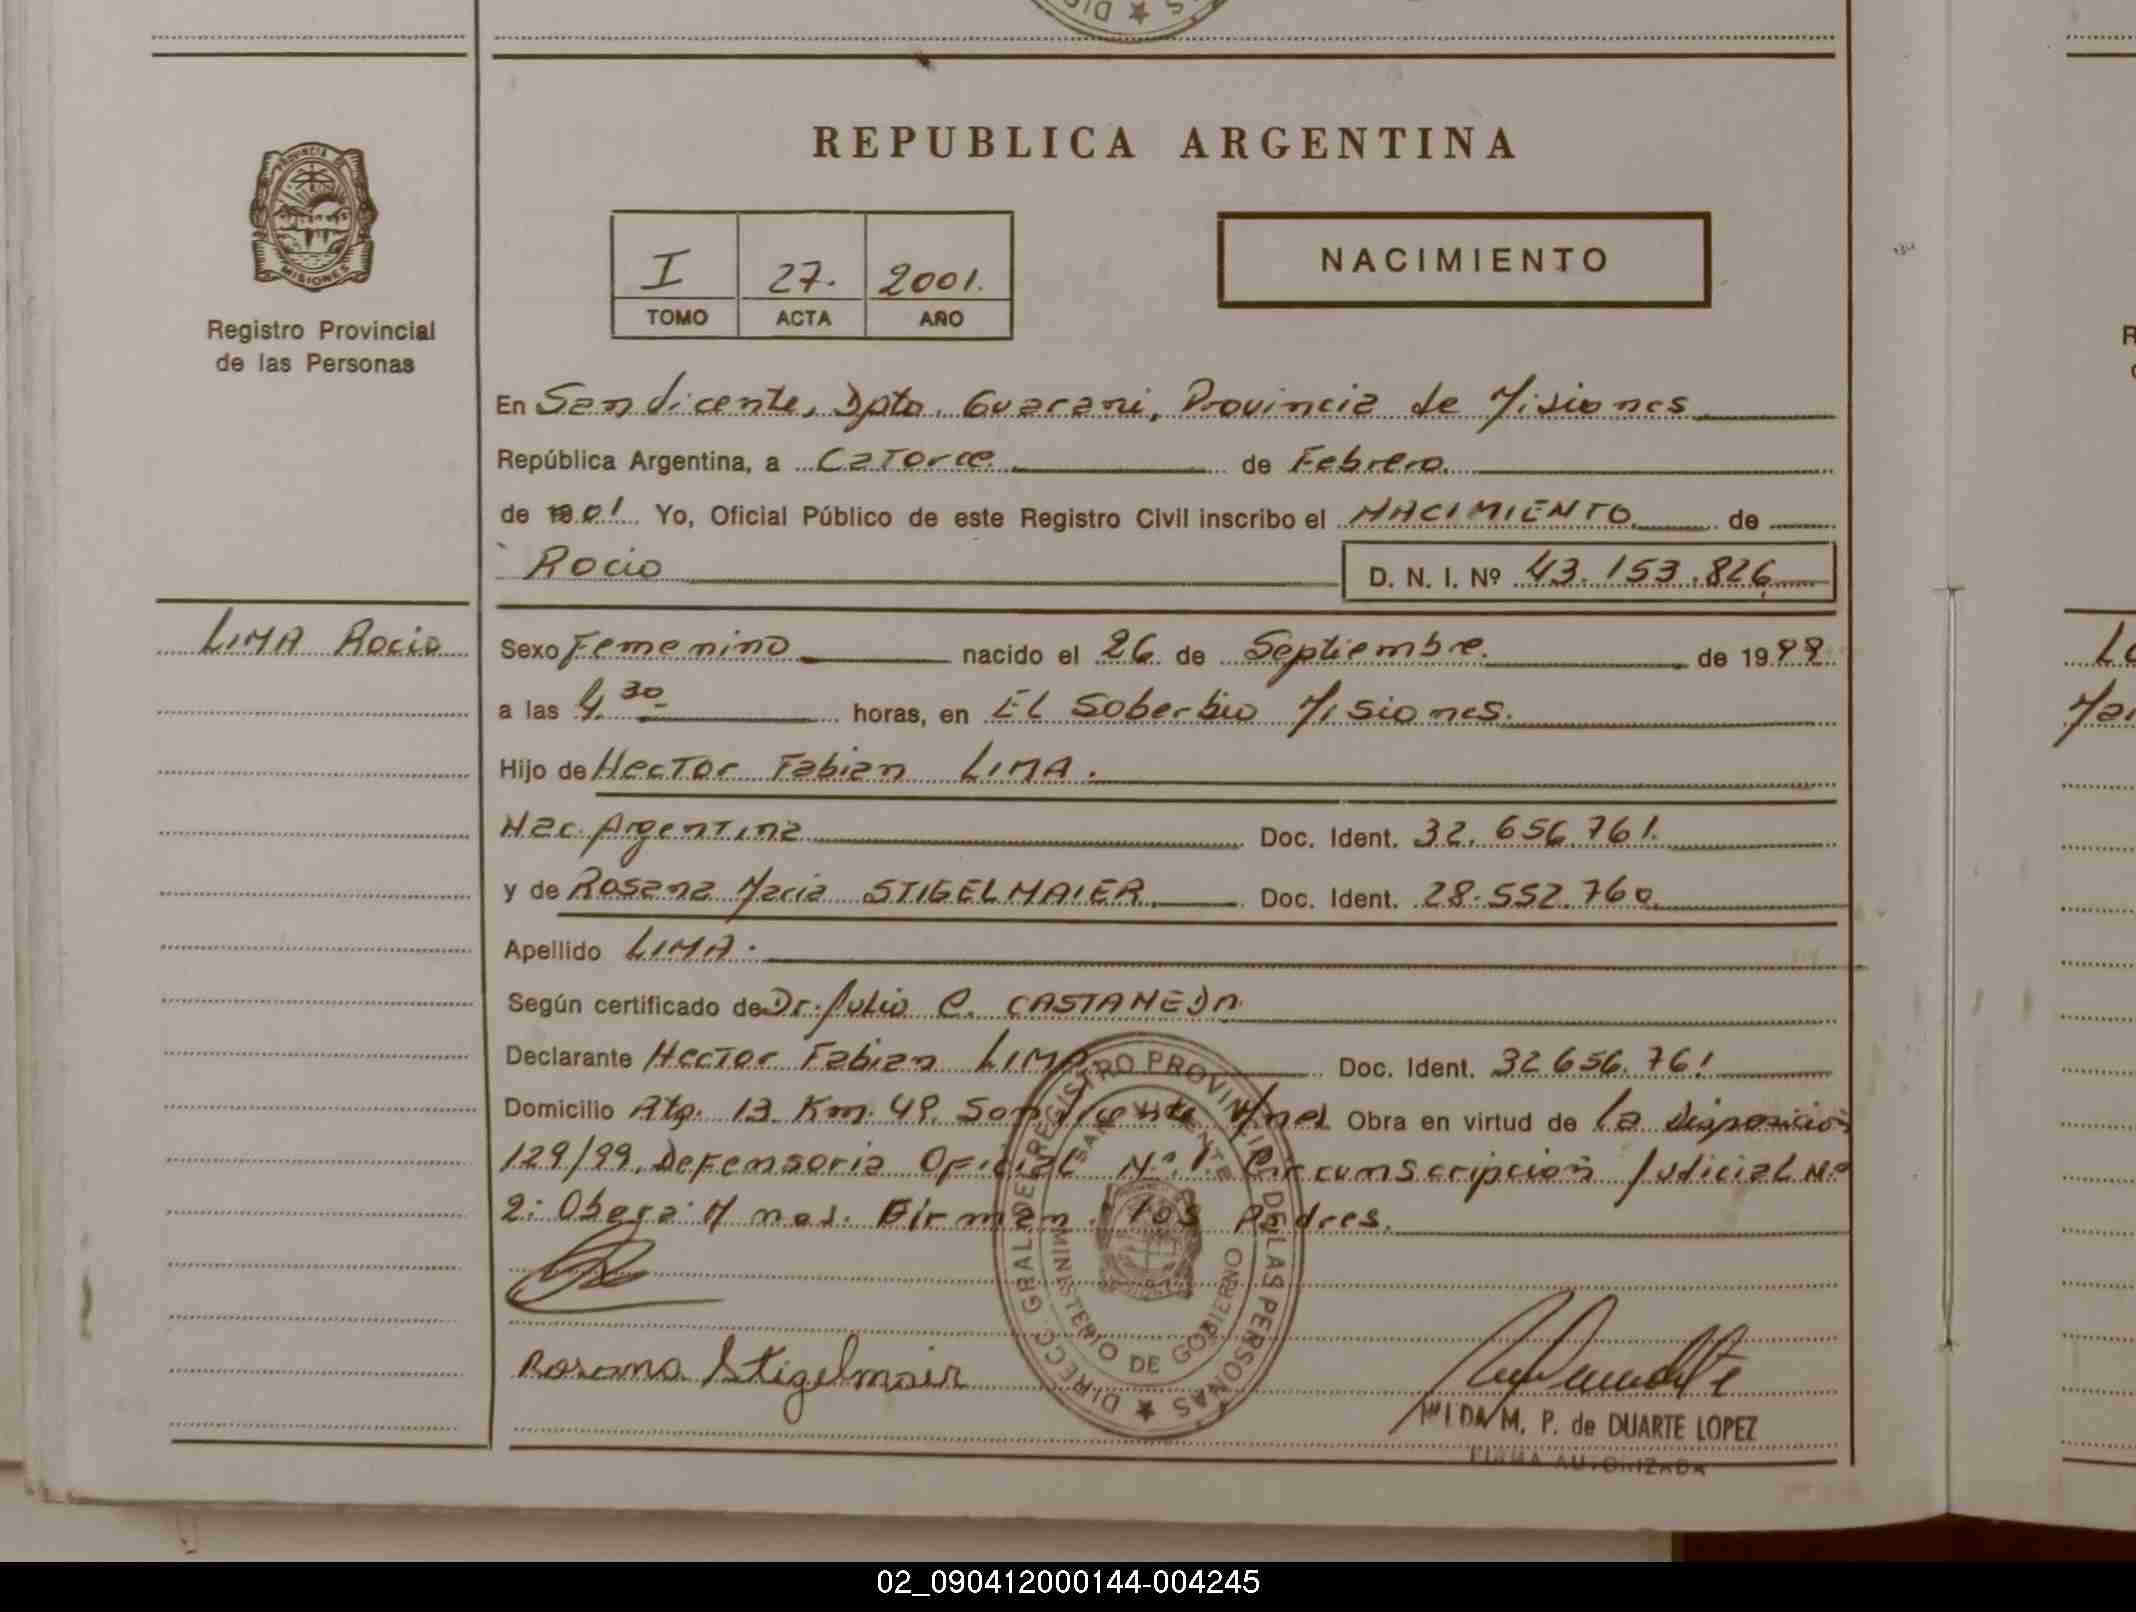 REPUBLICA ARGENTINA
PROVINCIA DE
MISIONES
Registro Provincial
de las Personas
I 27. 2001.
TOMO ACTA AÑO
NACIMIENTO
En San Vicente, Dpto. Guarani, Provincia de Misiones
República Argentina, a Catorce de Febrero
de 001 Yo, Oficial Público de este Registro Civil inscribo el NACIMIENTO de
Rocio D. N. I. Nº 43.153.826
LIMA Rocio
Sexo Femenino nacido el 26 de Septiembre de 1999
a las 4.30 horas, en El Soberbio Misiones.
Hijo de Hector Fabian LIMA.
Nac. Argentina Doc. Ident. 32.656.761.
y de Rosana Maria STIGELMAIER. Doc. Ident. 28.552.760
Apellido LIMA.
Según certificado de Dr. Julio C. CASTANEDA.
Declarante Hector Fabian LIMA Doc. Ident. 32656.761
Domicilio 13 Km. 49. San Vicente Mnes. Obra en virtud de la Disposicion
129/99, Defensoria Oficial Nº 1. Circumscripcion Judicial Nº
2: Obera Mnes. Firman los Padres.
Rosana Stigelmair
DIRECC. GRAL. DEL REGISTRO PROVINCIAL DE LAS PERSONAS
SAN VICENTE
MINISTERIO DE GOBIERNO
M. P. de DUARTE LOPEZ
FIRMA AUTORIZADA
02_090412000144-004245